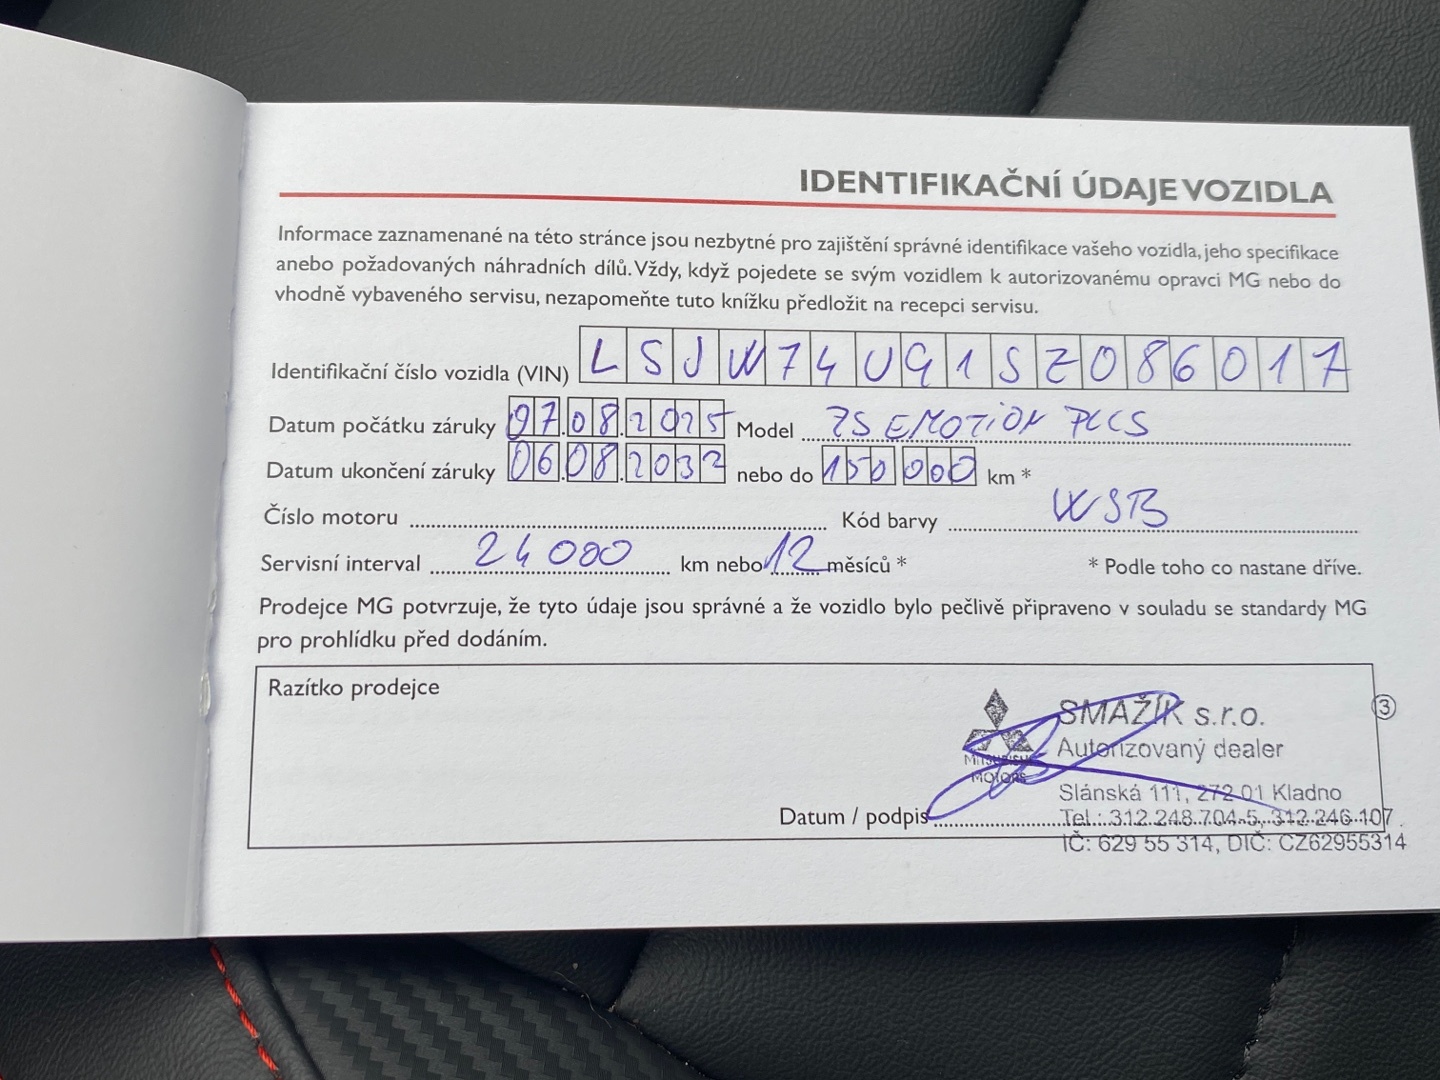 IDENTIFIKAČNÍ ÚDAJE VOZIDLA
Informace zaznamenané na této stránce jsou nezbytné pro zajištění správné identifikace vašeho vozidla, jeho specifikace
anebo požadovaných náhradních dílů. Vždy, když pojedete se svým vozidlem k autorizovanému opravci MG nebo do
vhodně vybaveného servisu, nezapomeňte tuto knížku předložit na recepci servisu.
Identifikační číslo vozidla (VIN) LSJW74U91SZ086017
Datum počátku záruky 07.08.2025 Model ZS EMOTION PLUS
Datum ukončení záruky 06.08.2032 nebo do 150 000 km *
Číslo motoru Kód barvy WSB
Servisní interval 24 000 km nebo 12 měsíců * * Podle toho co nastane dříve.
Prodejce MG potvrzuje, že tyto údaje jsou správné a že vozidlo bylo pečlivě připraveno v souladu se standardy MG
pro prohlídku před dodáním.
Razítko prodejce
3
SMAŽÍK s.r.o.
Autorizovaný dealer
MITSUBISHI
MOTORS
Slánská 111, 272 01 Kladno
Datum / podpis
Tel.: 312 248 704-5, 312 246 107
IČ: 629 55 314, DIČ: CZ62955314